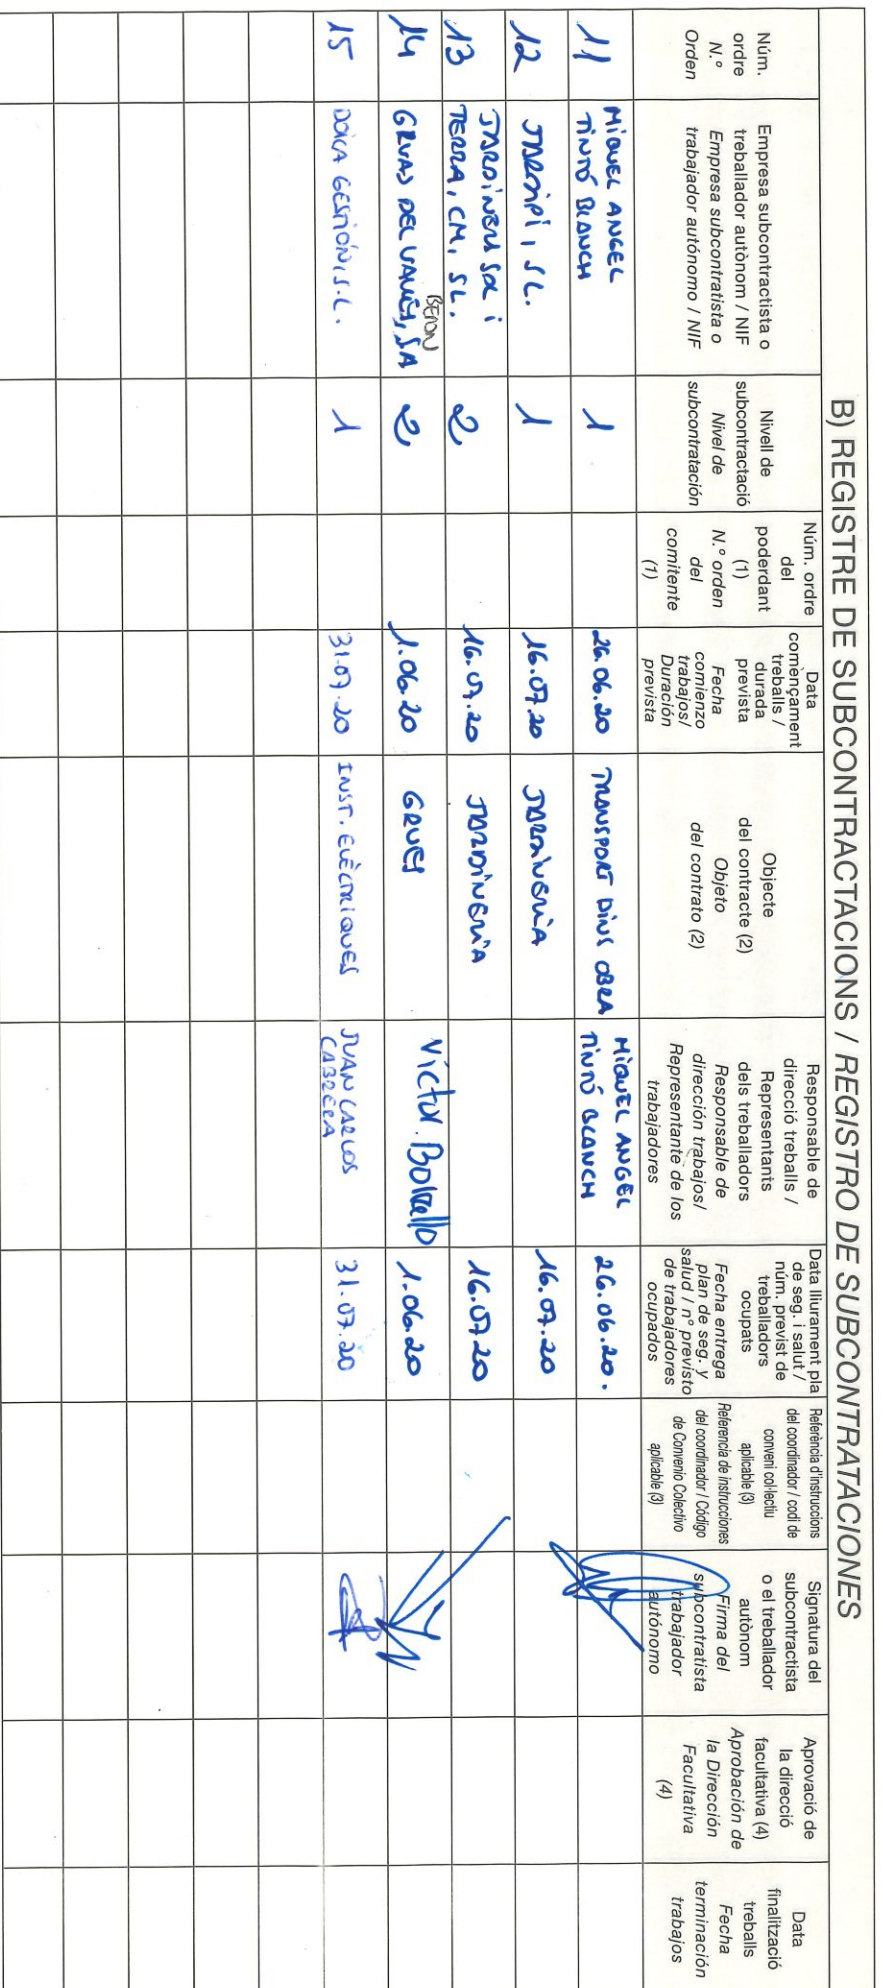 B) REGISTRE DE SUBCONTRACTACIONS / REGISTRO DE SUBCONTRATACIONES
Núm.
ordre
N.º
Orden
Empresa subcontractista o
treballador autònom / NIF
Empresa subcontratista o
trabajador autónomo / NIF
Nivell de
subcontractació
Nivel de
subcontratación
Núm. ordre
del
poderdant
(1)
N.º orden
del
comitente
(1)
Data
començament
treballs /
durada
prevista
Fecha
comienzo
trabajos/
Duración
prevista
Objecte
del contracte (2)
Objeto
del contrato (2)
Responsable de
direcció treballs /
Representants
dels treballadors
Responsable de
dirección trabajos/
Representante de los
trabajadores
Data lliurament pla
de seg. i salut /
núm. previst de
treballadors
ocupats
Fecha entrega
plan de seg. y
salud / nº previsto
de trabajadores
ocupados
Referència d'instruccions
del coordinador / codi de
conveni col·lectiu
aplicable (3)
Referencia de instrucciones
del coordinador / Código
de Convenio Colectivo
aplicable (3)
Signatura del
subcontractista
o el treballador
autònom
Firma del
subcontratista
trabajador
autónomo
Aprovació de
la direcció
facultativa (4)
Aprobación de
la Dirección
Facultativa
(4)
Data
finalització
treballs
Fecha
terminación
trabajos
11
MIQUEL ANGEL
TINTÓ BLANCH
1
26.06.20
TRANSPORT DINS OBRA
MIQUEL ANGEL
TINTÓ BLANCH
26.06.20.
12
, SL.
1
16.07.20
JARDINERIA
16.07.20
13
JARDINERS SOL i
TERRA, CM, SL.
2
16.07.20
JARDINERIA
16.07.20
14
GRUAS DEL VALLÉS, SA
2
1.06.20
GRUES
Víctor
1.06.20
15
GESTIÓN, S.L.
1
31.07.20
INST. ELÈCTRIQUES
JUAN CARLOS
CABRERA
31.07.20